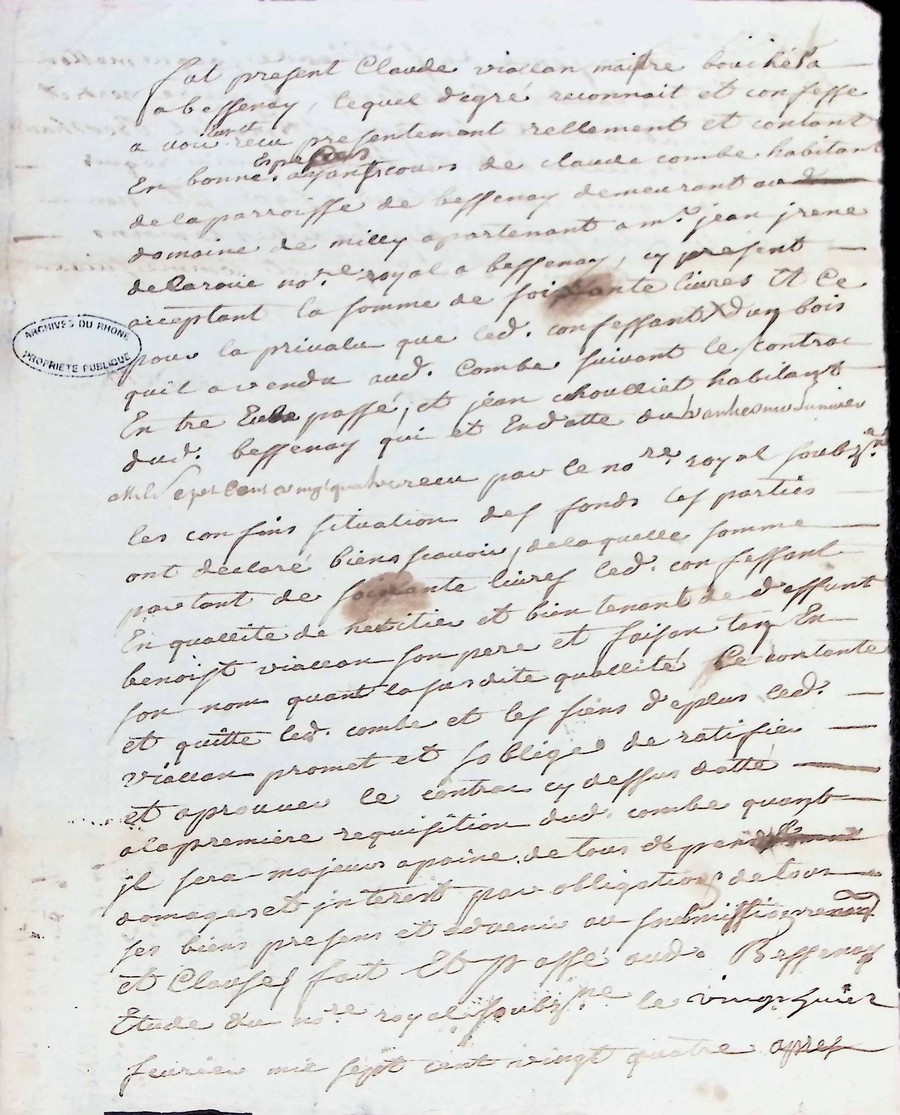 fut present Claude viallan maitre bouché a
a bessenay, lequel degré reconnait et confesse
avoir recu presentemant rellement et contant
En bonne Especes ayant cours de claude combe habitant
de la parroisse de bessenay demeurant au
domaine de milly apartenant a mr. jean jrene
delaroue nore. royal a bessenay, cy present
acceptant la somme de soixante livres Et Ce
pour la privalu que led. confessant dun bois
quil a vendu aud. Combe suivant le contrac
En tre Eux passé, et jean choulliet habitant
dud. bessenay qui et Endatte du
mil sept cent vingt quatre recu par le nore. royal soubz.né
les confins situation des fonds les parties
ont declaré bien scavoir, de laquelle somme
partant de soixante livres led. confessant
En quallite de heritier et bien tenant de deffunt
benoist viallan son pere et faisan tan En
son nom quant la susdite quallité Ce contente
et quitte led. combe et les siens deplus led.
viallan promet et soblige de ratifie
et aprouver le contrac cy dessus datté
a la premiere requisition dud. combe quant
jl sera majeur a paine de tous depans
domages et jnterest par obligation de tous
ses biens presens et advenir au soubmissions
et Clauses fait Et passé aud. Bessenay
Etude du nore royal soubz.ne le
fevrier mil sept cent vingt quatre apres
ARCHIVES DU RHONE
PROPRIETE PUBLIQUE